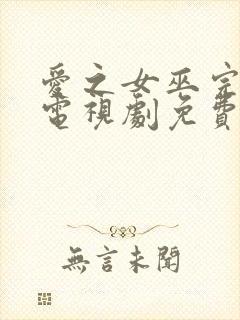 愛之女巫完
電視劇免費
無言未聞